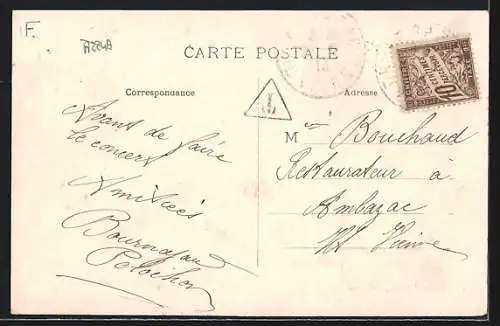 F.
A224A
CARTE POSTALE
Correspondance
Adresse
T
Avant de faire
le concert
Amitiés
M Bouchaud
Restaurateur à
Ambazac
Hte Vienne
10
CENTIMES
A PERCEVOIR